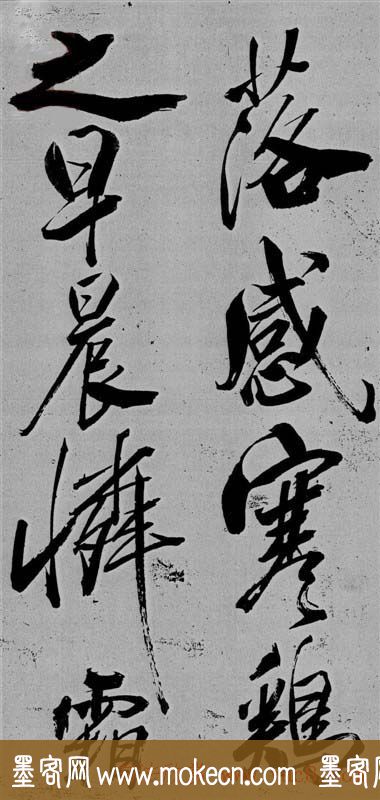 落感寒鷄
之早晨憐霜
墨客网www.mokecn.com墨客网